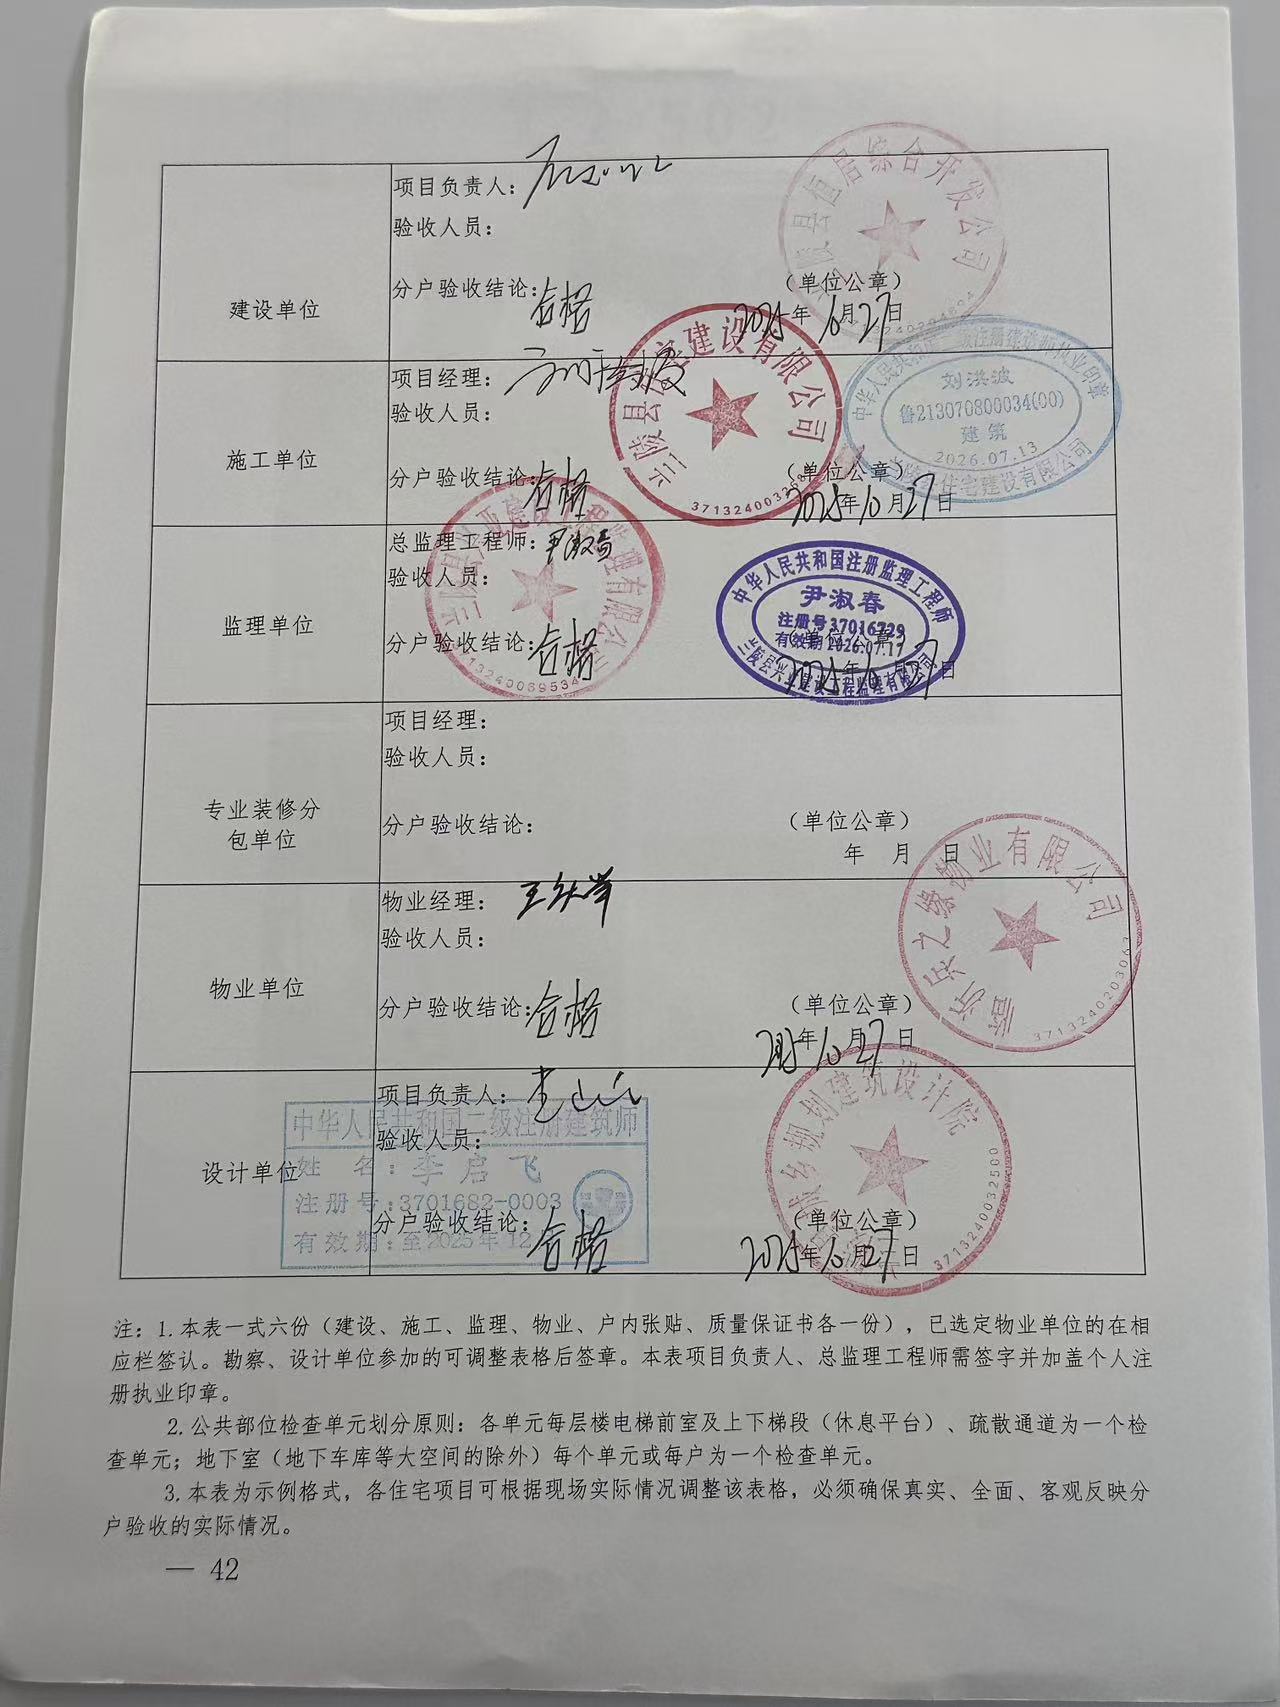 项目负责人：
验收人员：
建设单位
分户验收结论：合格
（单位公章）
2025年10月27日
县宜居综合开发公司
项目经理：
验收人员：
施工单位
分户验收结论：合格
（单位公章）
2025年10月27日
建设有限公司
中华人民共和国二级注册建造师执业印章
刘洪波
鲁213070800034(00)
建筑
2026.07.13
住宅建设有限公司
总监理工程师：尹淑春
验收人员：
监理单位
分户验收结论：合格
（单位公章）
2025年10月27日
兰陵县兴业建设工程监理有限公司
中华人民共和国注册监理工程师
尹淑春
注册号37016729
有效期2026.07.17
兰陵县兴业建设工程监理有限公司
项目经理：
验收人员：
专业装修分
包单位
分户验收结论：
（单位公章）
年 月 日
物业经理：
验收人员：
物业单位
分户验收结论：合格
（单位公章）
2025年10月27日
临沂乐之缘物业有限公司
3713240203063
项目负责人：
验收人员：
设计单位
分户验收结论：合格
（单位公章）
2025年10月27日
中华人民共和国二级注册建筑师
姓 名：李启飞
注册号：3701682-0003
有效期：至2025年12
城乡规划建筑设计院
3713240032500
注：1.本表一式六份（建设、施工、监理、物业、户内张贴、质量保证书各一份），已选定物业单位的在相
应栏签认。勘察、设计单位参加的可调整表格后签章。本表项目负责人、总监理工程师需签字并加盖个人注
册执业印章。
2.公共部位检查单元划分原则：各单元每层楼电梯前室及上下梯段（休息平台）、疏散通道为一个检
查单元；地下室（地下车库等大空间的除外）每个单元或每户为一个检查单元。
3.本表为示例格式，各住宅项目可根据现场实际情况调整该表格，必须确保真实、全面、客观反映分
户验收的实际情况。
— 42